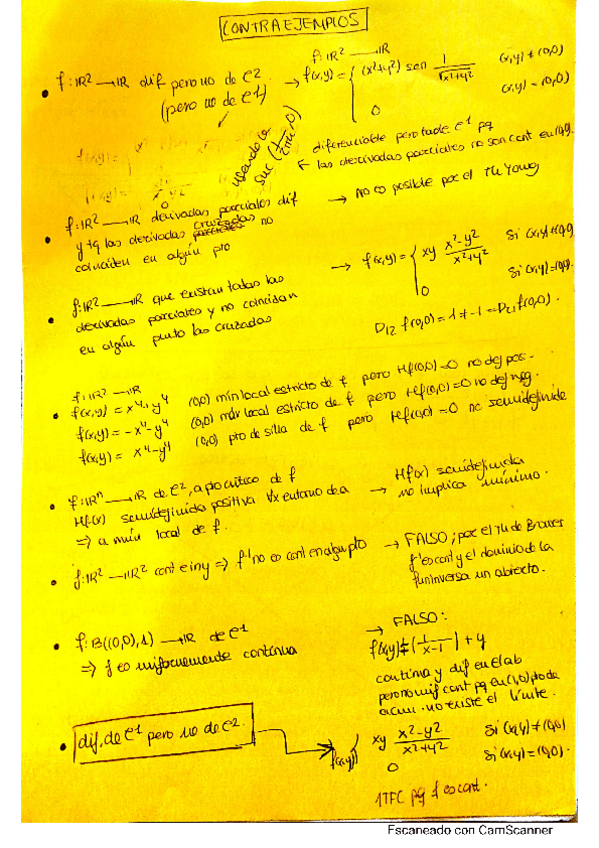 CONTRAEJEMPLOS
• f: ℝ² → ℝ dif pero no de C2
(pero no de C1)
→ f: ℝ² → ℝ
f(x,y) = { (x²+y²) sen 1/√(x²+y²) (x,y) ≠ (0,0)
0 (x,y) = (0,0)
usando la suc (1/2πn, 0)
diferenciable pero no de C1 pq
← las derivadas parciales no son cont en (0,0).
• f: ℝ² → ℝ derivadas parciales dif
y tq las derivadas cruzadas no
coinciden en algún pto
→ No es posible por el Tu Young
• f: ℝ² → ℝ que existan todas las
derivadas parciales y no coincidan
en algún punto las cruzadas
→ f(x,y) = { xy (x²-y²)/(x²+y²) Si (x,y) ≠ (0,0)
0 Si (x,y) = (0,0).
D12 f(0,0) = 1 ≠ -1 = D21 f(0,0).
• f: ℝ² → ℝ
f(x,y) = x⁴+y⁴ (0,0) mín local estricto de f pero Hf(0,0)=0 no def pos.
f(x,y) = -x⁴-y⁴ (0,0) máx local estricto de f pero Hf(0,0)=0 no def neg.
f(x,y) = x⁴-y⁴ (0,0) pto de silla de f pero Hf(0,0)=0 no semidefinida
• f: ℝⁿ → ℝ de C2, a pto crítico de f
Hf(x) semidefinida positiva ∀x entorno de a
⇒ a mín local de f.
→ Hf(x) semidefinida
no implica mínimo.
• f: ℝ² → ℝ² cont e iny ⇒ f⁻¹ no es cont en algún pto
→ FALSO; por el Tu de Brower
f⁻¹ es cont y el dominio de la
fun inversa un abierto.
• f: B((0,0),1) → ℝ de C1
⇒ f es uniformemente continua
→ FALSO:
f(x,y) = (1/x-1) + y
continua y dif en el ab
pero no unif cont pq en (1,0) pto de
acum. no existe el límite.
• dif. de C1 pero no de C2.
→ f(x,y) { xy (x²-y²)/(x²+y²) Si (x,y) ≠ (0,0)
0 Si (x,y) = (0,0).
1TFC pq f es cont.
Escaneado con CamScanner